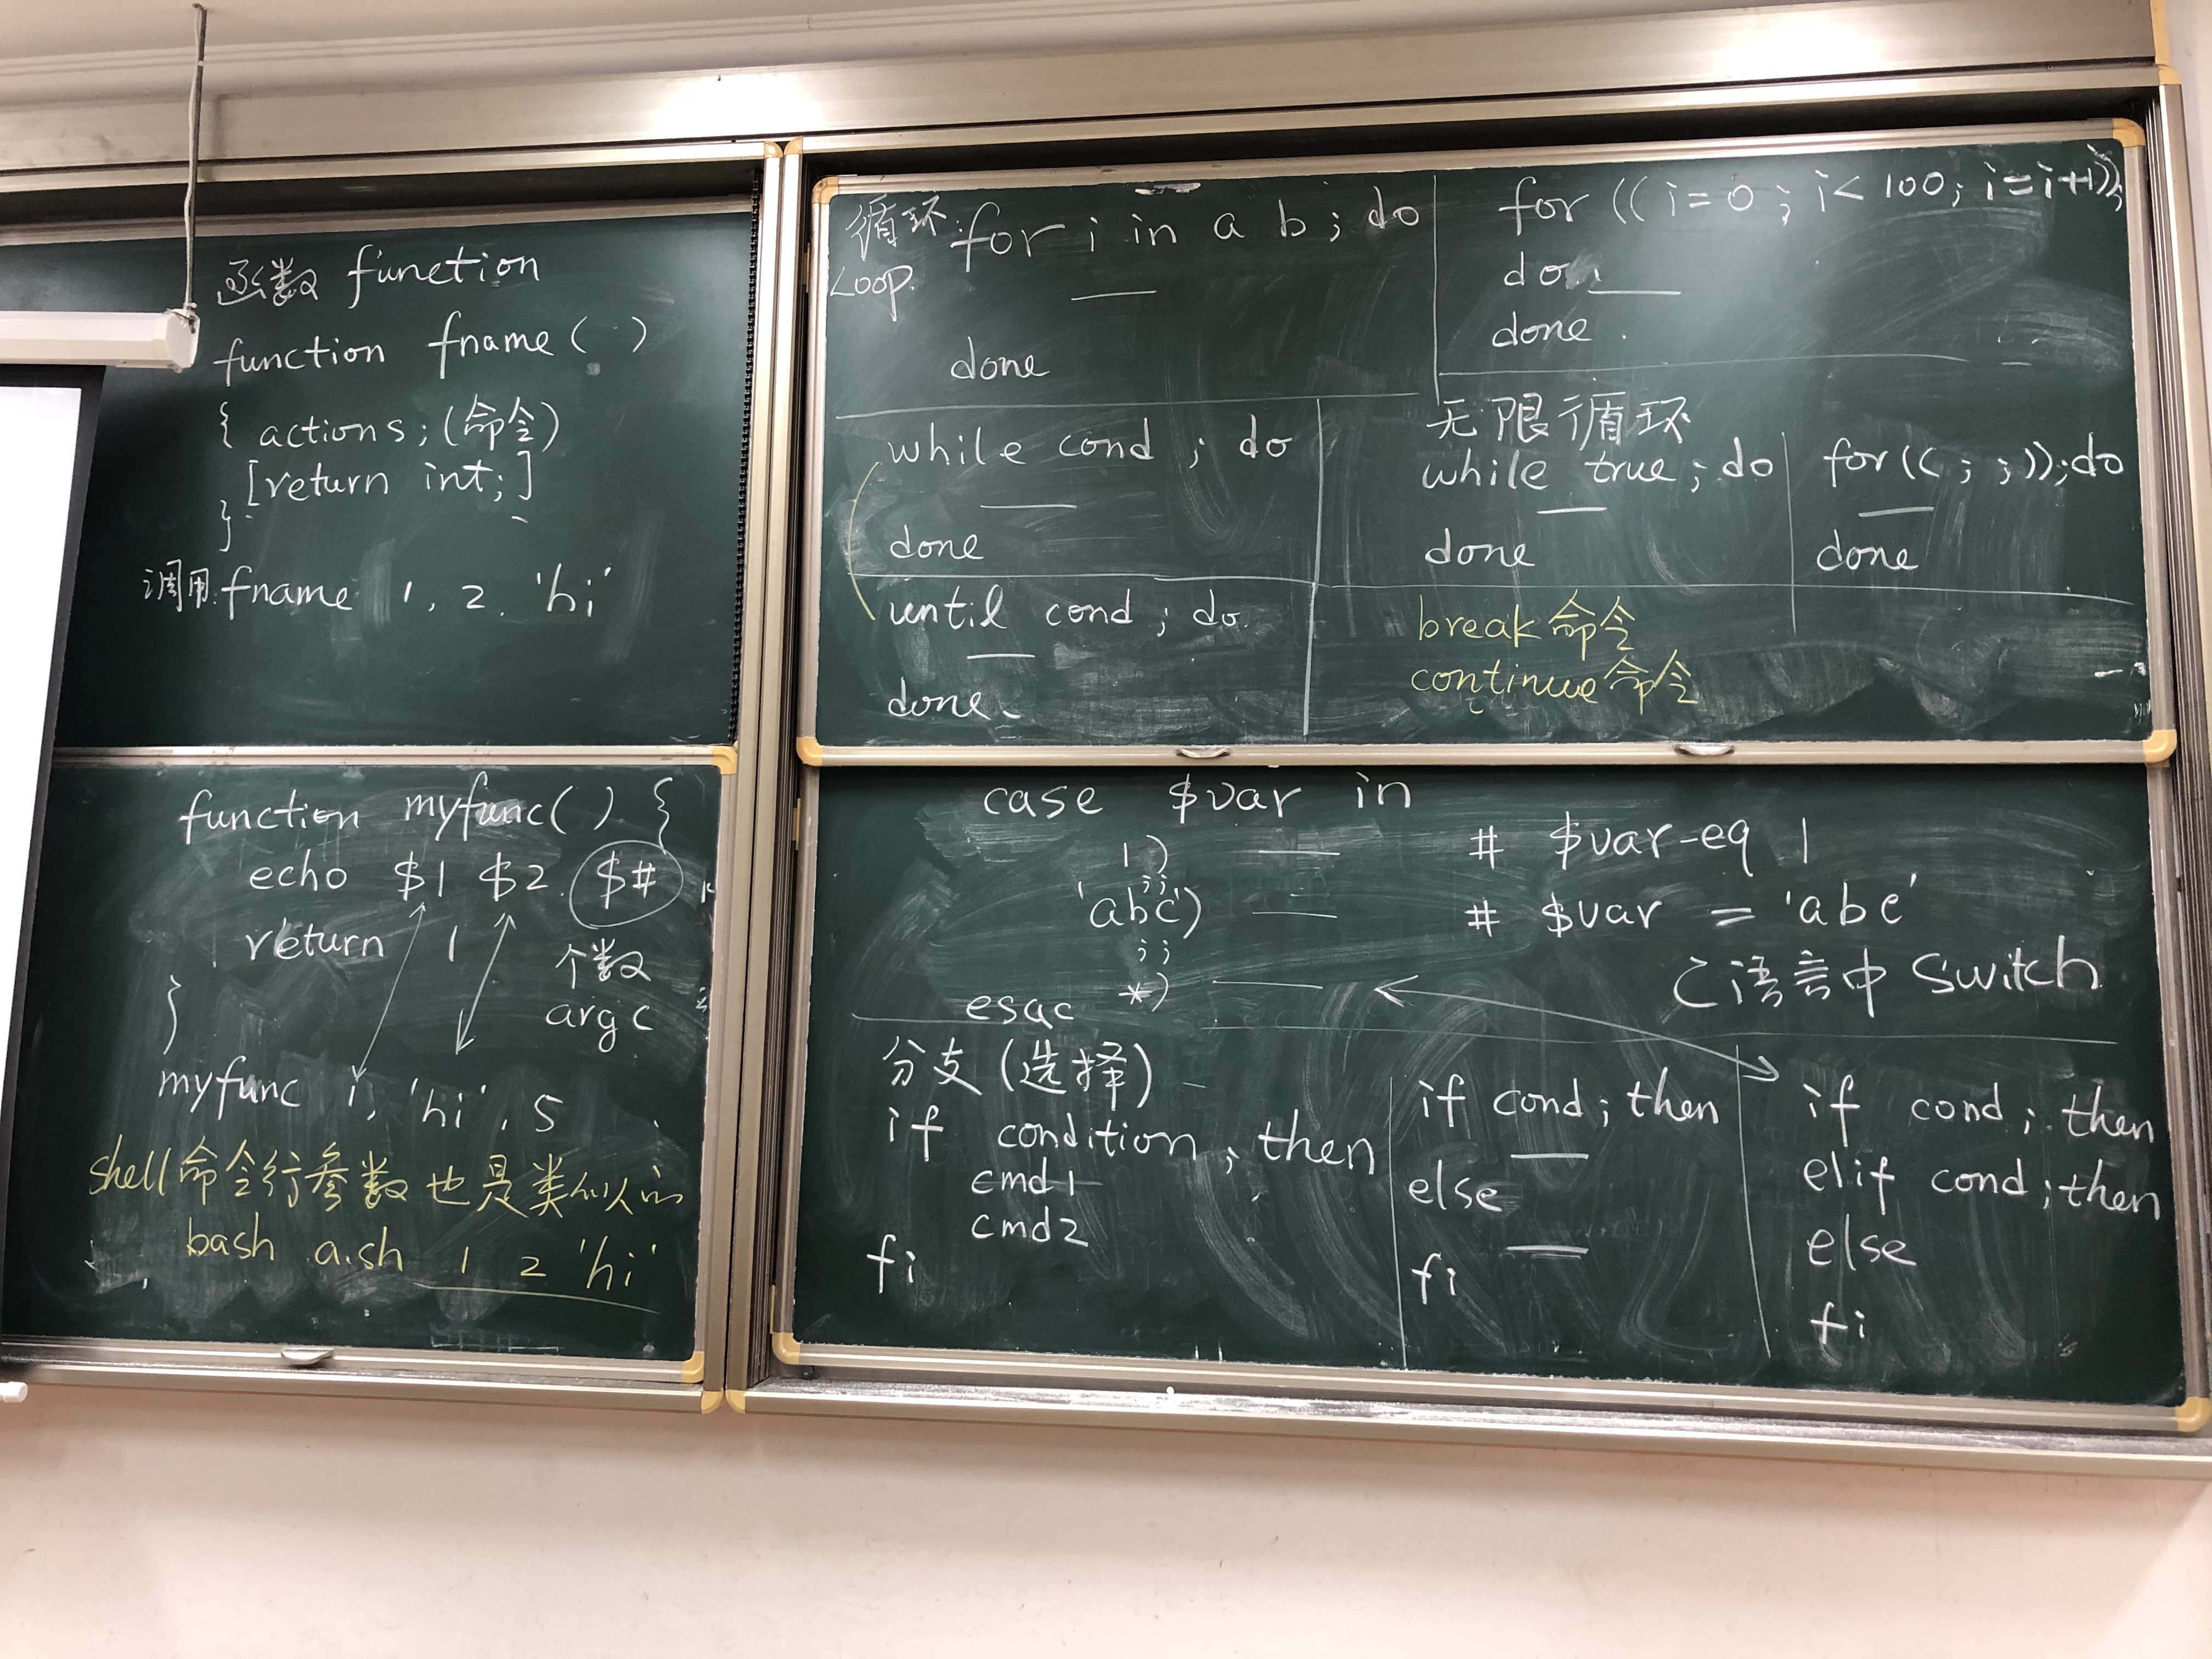 函数 function
function fname ( )
{ actions; (命令)
[return int;]
}
调用: fname 1, 2, 'hi'
function myfunc( ) {
echo $1 $2 $#
return 1
个数
argc
}
myfunc 1, 'hi', 5
shell 命令行参数也是类似的
bash a.sh 1 2 'hi'
循环: for i in a b ; do
Loop.
done
for ((i=0; i<100; i=i+1));
do
done.
while cond ; do
done
until cond ; do
done
无限循环
while true ; do
done
for(( ; ; )); do
done
break 命令
continue 命令
case $var in
1) # $var -eq 1
;;
'abc') # $var = 'abc'
;;
*)
esac
C 语言中 switch
分支 (选择)
if condition ; then
cmd1
cmd2
fi
if cond ; then
else
fi
if cond ; then
elif cond ; then
else
fi